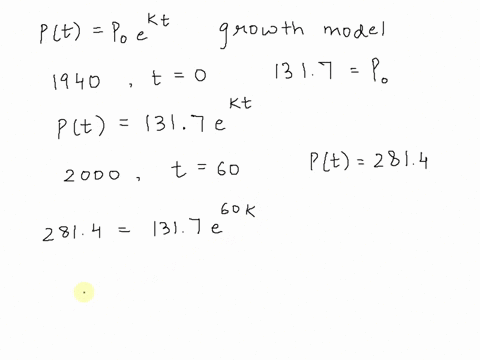 P(t) = P₀ e^{Kt} growth model
1940 , t = 0 131.7 = P₀
P(t) = 131.7 e^{Kt}
2000 , t = 60 P(t) = 281.4
281.4 = 131.7 e^{60K}